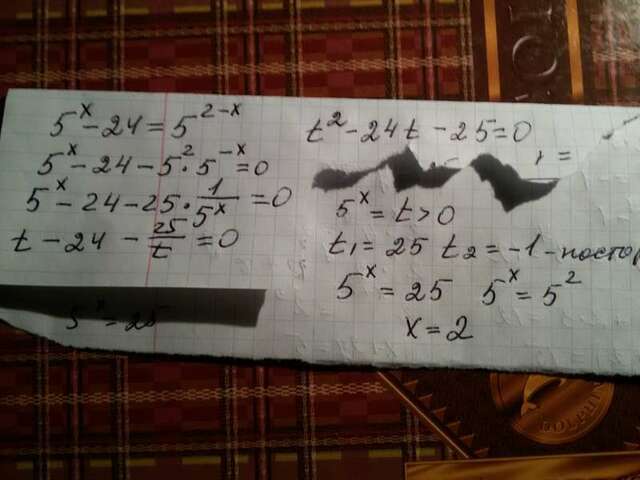 5^x - 24 = 5^{2-x}
5^x - 24 - 5^2 · 5^{-x} = 0
5^x - 24 - 25 · \frac{1}{5^x} = 0
t - 24 - \frac{25}{t} = 0
5^x = 25
t^2 - 24t - 25 = 0
5^x = t > 0
t_1 = 25 t_2 = -1 - постор
5^x = 25 5^x = 5^2
x = 2
DOLPHI